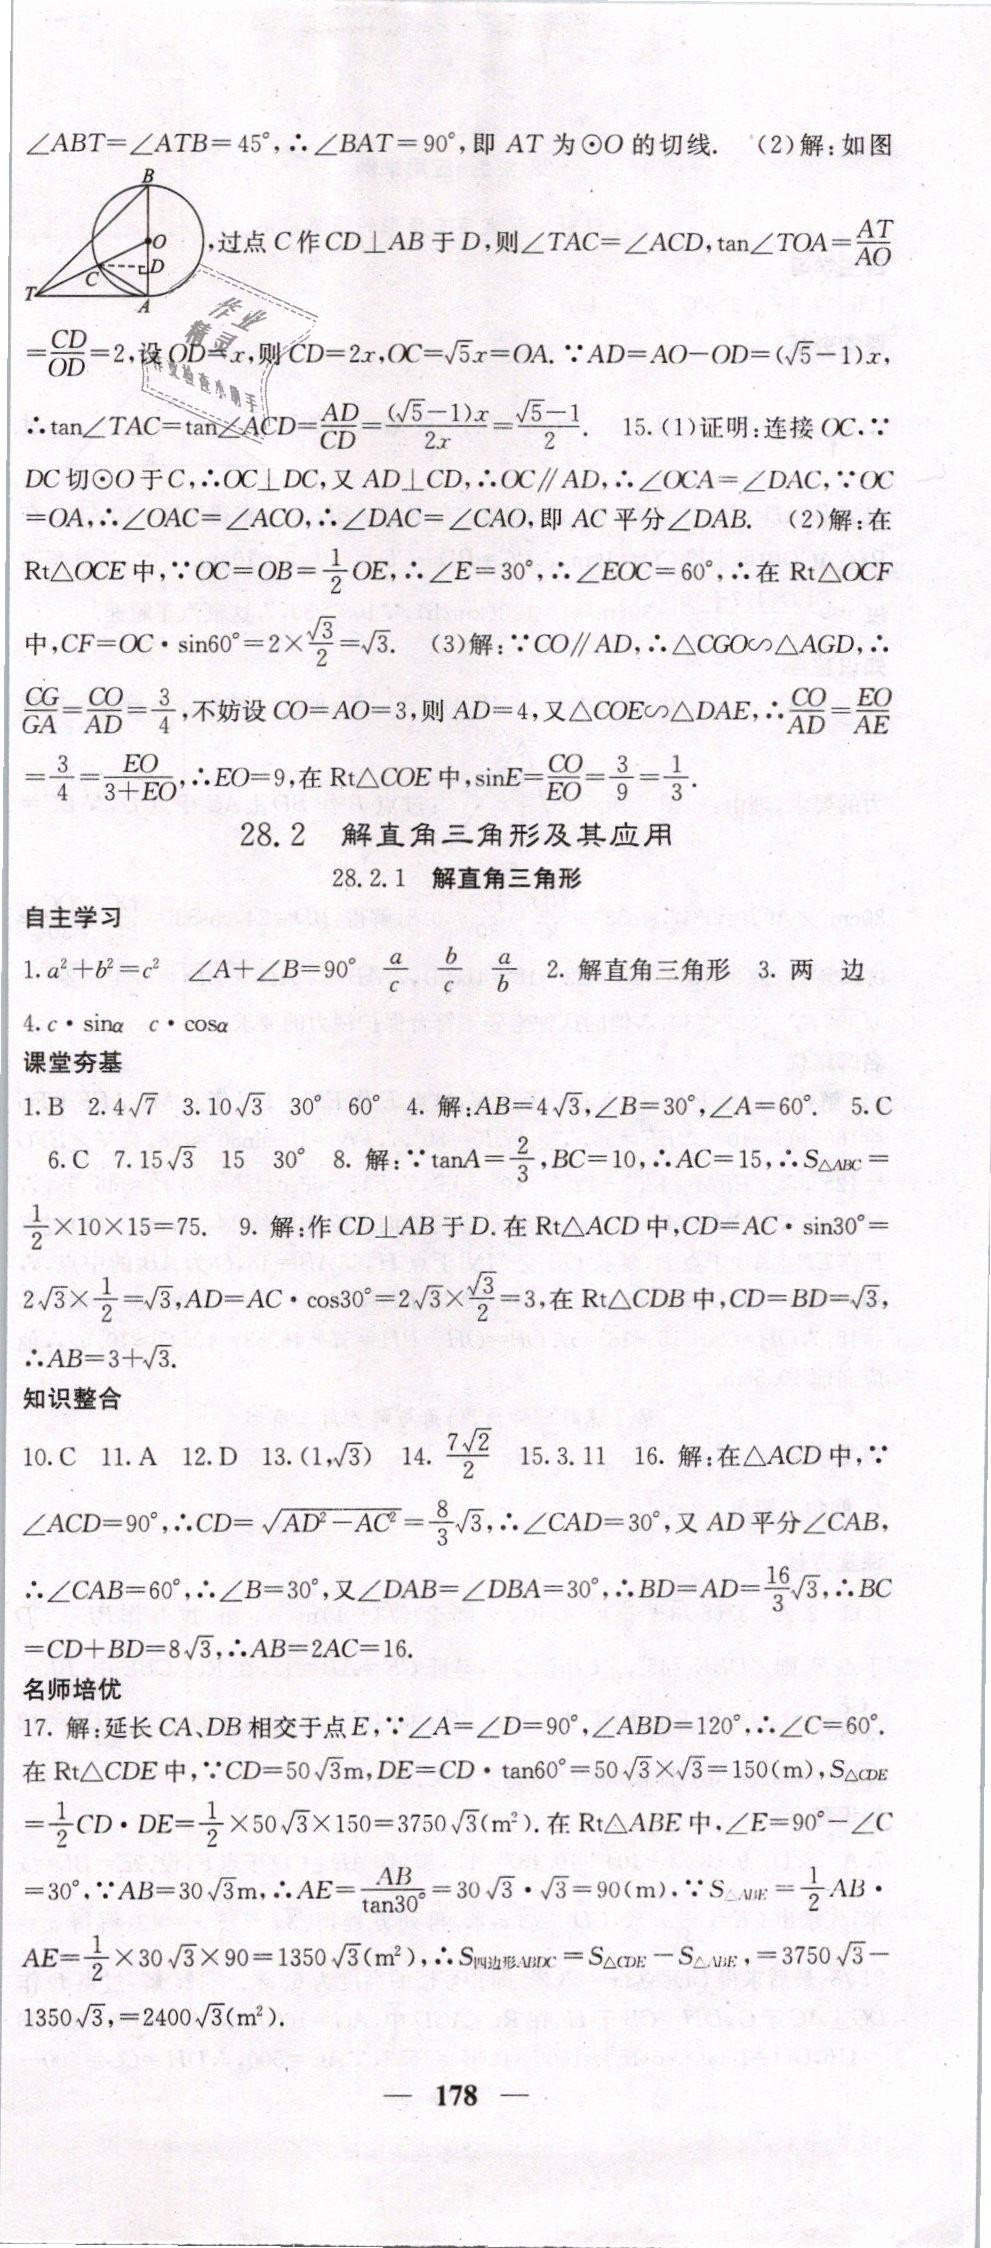 ∠ABT=∠ATB=45°,∴∠BAT=90°,即 AT 为⊙O 的切线. (2)解:如图
B
O
C
D
T
A
,过点 C 作 CD⊥AB 于 D,则∠TAC=∠ACD,tan∠TOA=AT/AO
=CD/OD=2,设 OD=x,则 CD=2x,OC=√5x=OA.∵AD=AO-OD=(√5-1)x,
∴tan∠TAC=tan∠ACD=AD/CD=(√5-1)x/2x=(√5-1)/2. 15.(1)证明:连接 OC.∵
DC 切⊙O 于 C,∴OC⊥DC,又 AD⊥CD,∴OC∥AD,∴∠OCA=∠DAC,∵OC
=OA,∴∠OAC=∠ACO,∴∠DAC=∠CAO,即 AC 平分∠DAB. (2)解:在
Rt△OCE 中,∵OC=OB=1/2OE,∴∠E=30°,∴∠EOC=60°,∴在 Rt△OCF
中,CF=OC·sin60°=2×√3/2=√3. (3)解:∵CO∥AD,∴△CGO∽△AGD,∴
CG/GA=CO/AD=3/4,不妨设 CO=AO=3,则 AD=4,又△COE∽△DAE,∴CO/AD=EO/AE
=3/4=EO/(3+EO),∴EO=9,在 Rt△COE 中,sinE=CO/EO=3/9=1/3.
28.2 解直角三角形及其应用
28.2.1 解直角三角形
自主学习
1.a²+b²=c² ∠A+∠B=90° a/c b/c a/b 2. 解直角三角形 3. 两 边
4.c·sinα c·cosα
课堂夯基
1.B 2.4√7 3.10√3 30° 60° 4. 解:AB=4√3,∠B=30°,∠A=60°. 5.C
6.C 7.15√3 15 30° 8. 解:∵tanA=2/3,BC=10,∴AC=15,∴S△ABC=
1/2×10×15=75. 9. 解:作 CD⊥AB 于 D.在 Rt△ACD 中,CD=AC·sin30°=
2√3×1/2=√3,AD=AC·cos30°=2√3×√3/2=3,在 Rt△CDB 中,CD=BD=√3,
∴AB=3+√3.
知识整合
10.C 11.A 12.D 13.(1,√3) 14. 7√2/2 15.3.11 16. 解:在△ACD 中,∵
∠ACD=90°,∴CD=√(AD²-AC²)=8/3√3,∴∠CAD=30°,又 AD 平分∠CAB,
∴∠CAB=60°,∴∠B=30°,又∠DAB=∠DBA=30°,∴BD=AD=16/3√3,∴BC
=CD+BD=8√3,∴AB=2AC=16.
名师培优
17. 解:延长 CA、DB 相交于点 E,∵∠A=∠D=90°,∠ABD=120°,∴∠C=60°.
在 Rt△CDE 中,∵CD=50√3m,DE=CD·tan60°=50√3×√3=150(m),S△CDE
=1/2CD·DE=1/2×50√3×150=3750√3(m²).在 Rt△ABE 中,∠E=90°-∠C
=30°,∵AB=30√3m,∴AE=AB/tan30°=30√3·√3=90(m),∵S△ABE=1/2AB·
AE=1/2×30√3×90=1350√3(m²),∴S四边形ABDC=S△CDE-S△ABE,=3750√3-
1350√3,=2400√3(m²).
— 178 —
作业
精灵
作业检查小助手